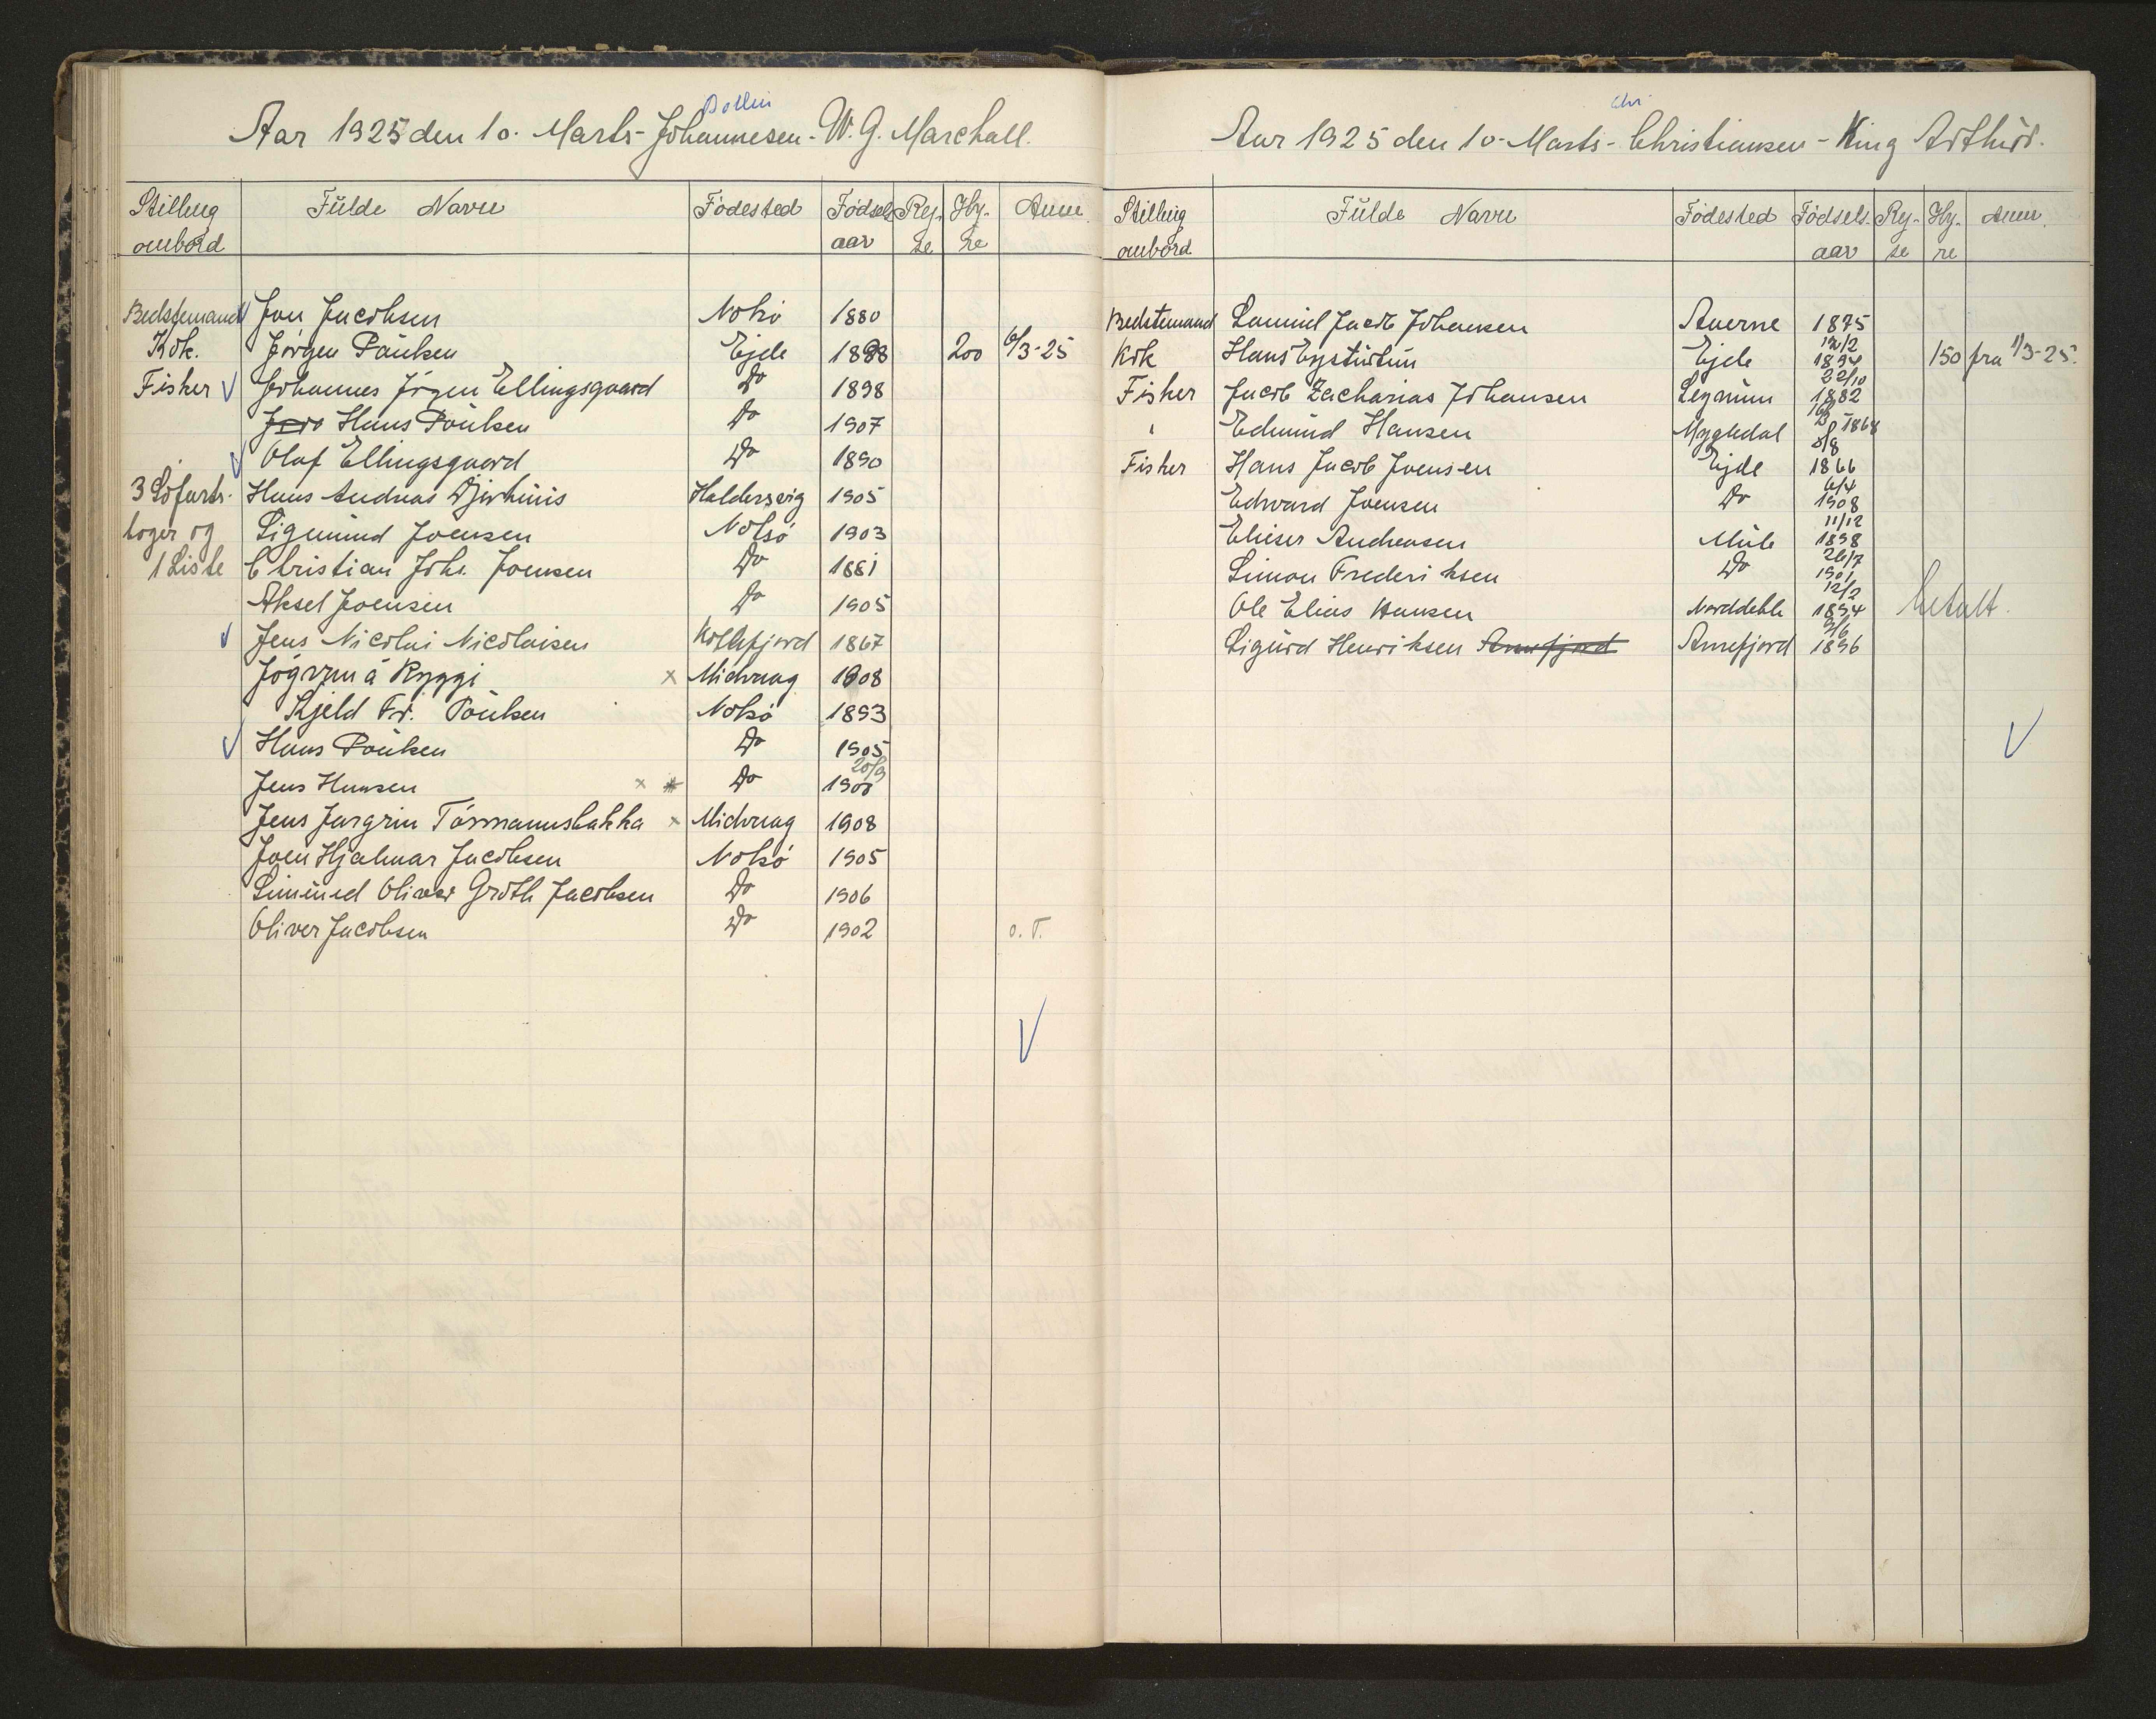 Bollin
Aar 1925 den 10. Marts - Johannesen - W. G. Marchall.
Stilling ombord Fülde Navn Födested Födsels aar Rej- se Hy- re Anm.
Bedstemand Jon Jacobsen Nolsö 1880
Kok. Jörgen Poülsen Ejde 1898 200 6/3-25
Fisker Johannes Jögen Ellingsgaard Do 1898
Hans Poülsen Do 1907
Olaf Ellingsgaard Do 1890
3 Söfarts- Hans Andreas Djürhüüs Haldersvig 1905
boger og Sigmünd Joensen Nolsö 1903
1 Liste Christian Johs. Joensen Do 1881
Aksel Joensen Do 1905
Jens Nicolai Nicolaisen Kollefjord 1867
Jógvan á Ryggi x Midvaag 1908
Kjeld Fr. Poülsen Nolsö 1893
Hans Poülsen Do 1905
Jens Hansen x Do 20/9 1900
Jens Jargrin Tórmannsbakka x Midvaag 1908
Joen Hjalmar Jacobsen Nolsö 1905
Simüned Oliver Groth Jacobsen Do 1906
Oliver Jacobsen Do 1902 o. T.
Chr
Aar 1925 den 10. Marts - Christiansen - King Arthür.
Stilling ombord Fülde Navn Födested Födsels- aar Rej- se Hy- re Anm.
Bedstemand Samüel Jacob Johansen Auerne 1875
Kok Hans Eystürtün Ejde 12/2 1894 150 fra 1/3-25.
Fisker Jacob Zacharias Johansen 22/10 1882
" Edmünd Hansen Mygledal 1868
Fisker Hans Jacob Joensen Ejde 8/8 1866
Edvard Joensen Do 6/4 1908
Elieser Andreasen Müle 11/12 1898
Simon Frederiksen Do 26/7 1901
Ole Elias Hansen Norddeble 12/2 1894 betalt.
Sigürd Henriksen Annefjord Annefjord 9/6 1896